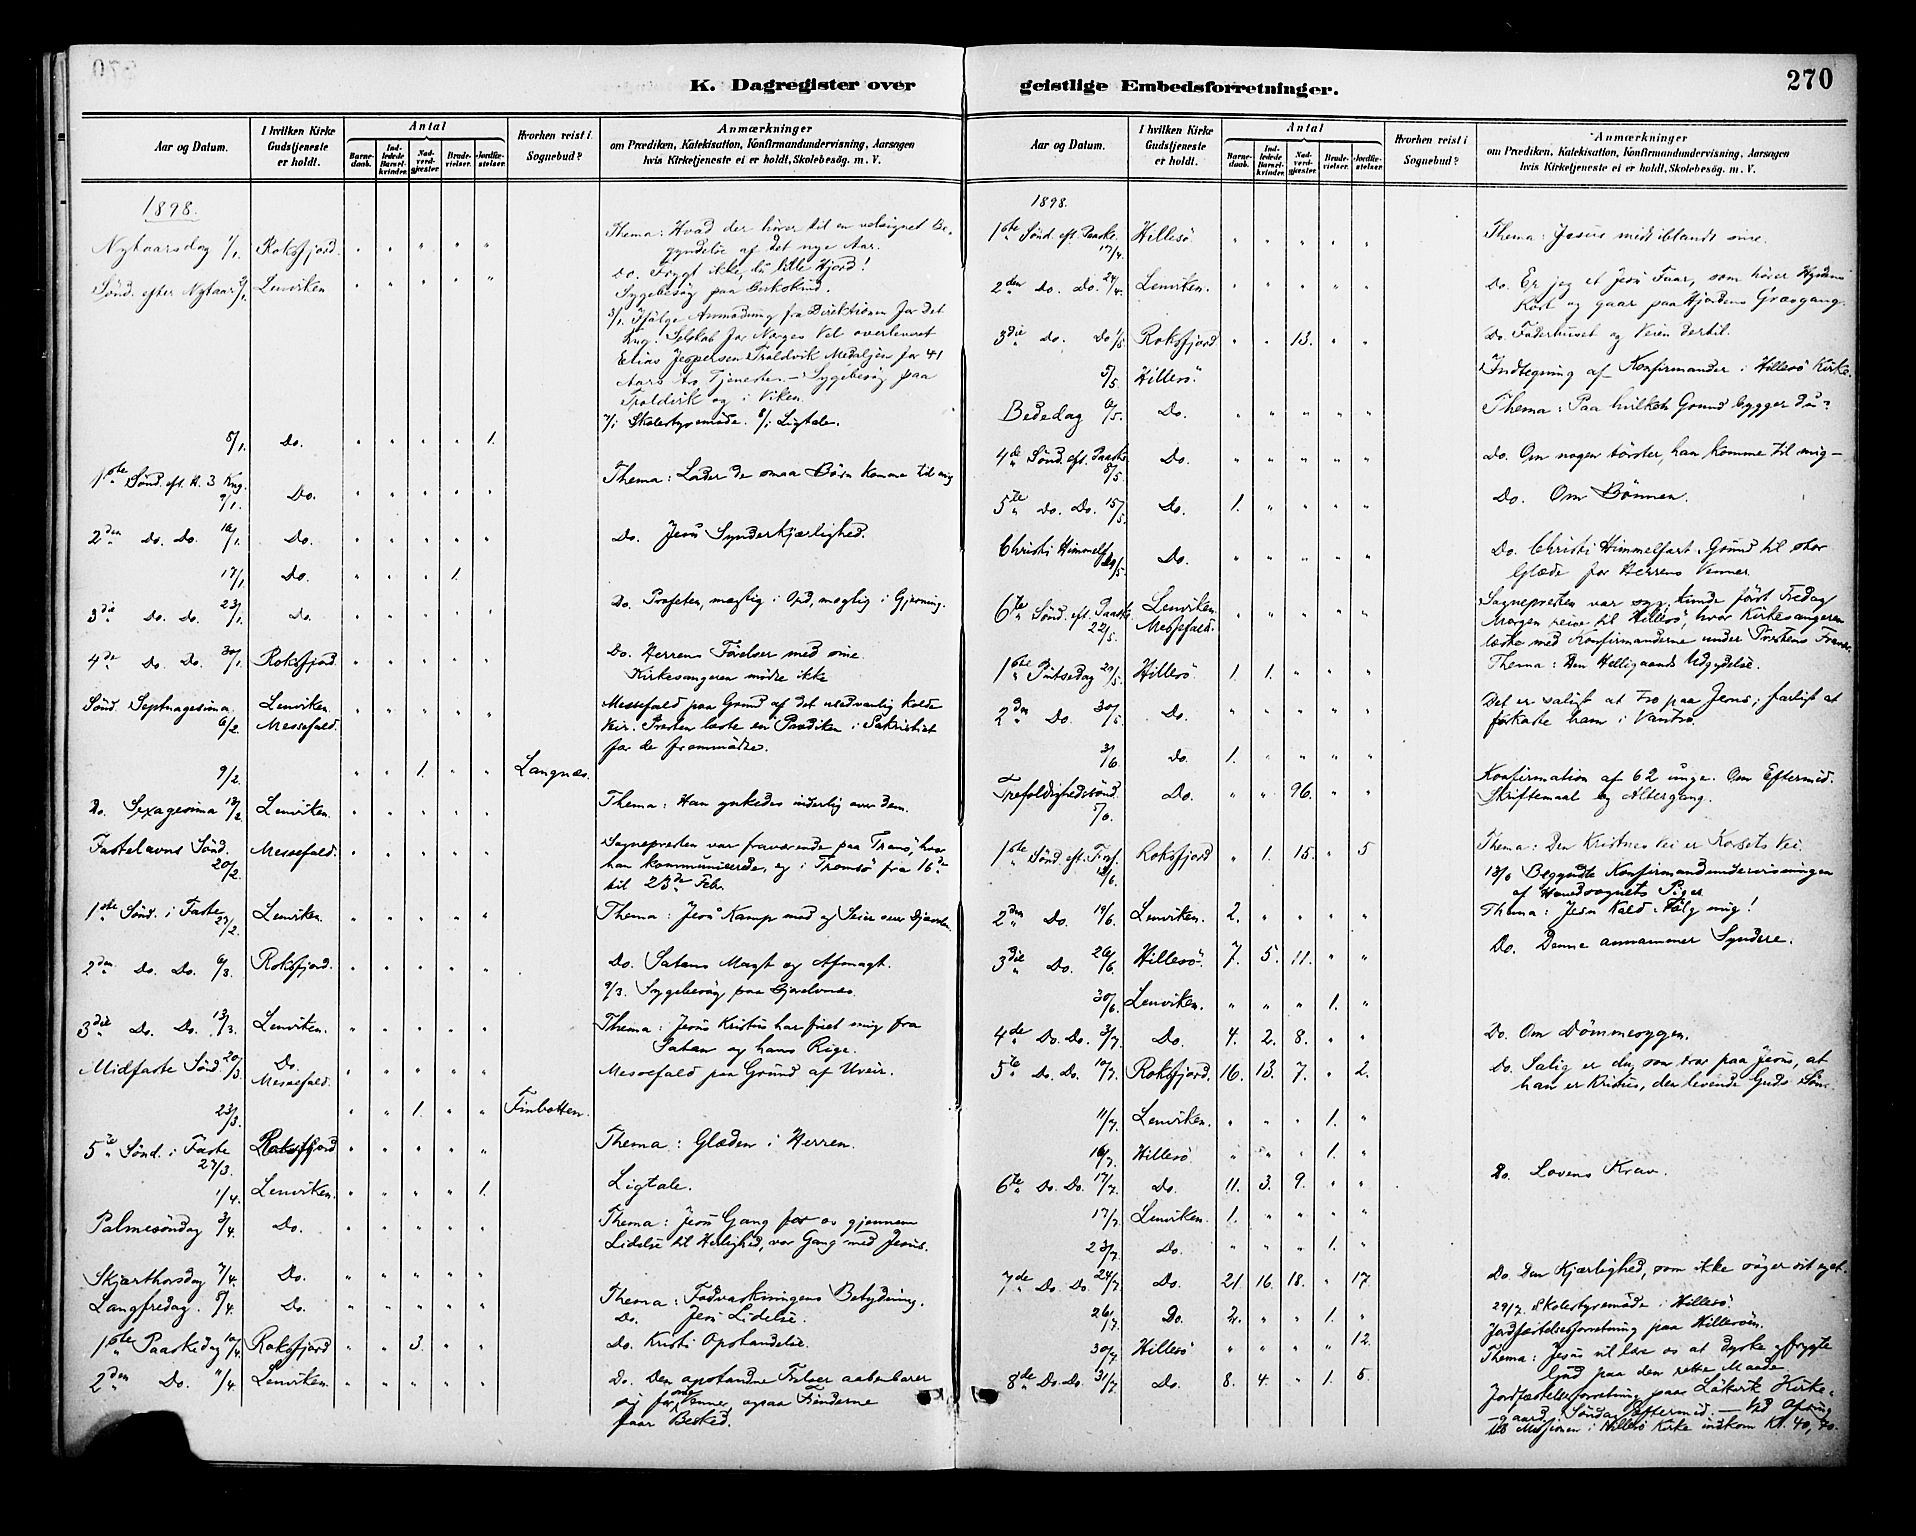 K. Dagregister over
Aar og Datum.
I hvilken Kirke Gudstjeneste er holdt.
Antal
Barnedaab.
Indledede Barselkvinder.
Nadverdgjester.
Brudevielser.
Jordfæstelser.
Hvorhen reist i Sognebud?
Anmærkninger
om Prædiken, Katekisation, Konfirmandundervisning, Aarsagen
hvis Kirketjeneste ei er holdt, Skolebesøg. m. V.
1898.
Nytaarsdag 1/1. Roksfjord. Thema: Hvad der hører til en velsignet Be-
gyndelse af det nye Aar.
Sønd. efter Nytaar 2/1. Lenviken Do. Frygt ikke, du lille Hjord!
Sygebesøg paa
3/1. Ifølge Anmodning fra Direktionen for det
Kng. Selskab for Norges Vel overleveret
Elias Jespersen Troldvik Medaljen for 41
Aars Tjeneste. - Sygebesøg paa
Troldvik og i Viken.
7/1 Skolestyremøde. 8/1 Ligtale.
8/1. Do. 1.
1ste Sønd. eft. H. 3 Kng. 9/1. Do. Thema: Lader de smaa Børn komme til mig
2den Do. Do. 16/1. Do. Do. Jesu Synderkjærlighed.
17/1 Do. 1.
3die Do. Do. 23/1. Do. Do. Profeten, mægtig i Ord, mægtig i Gjerning.
4de Do. Do. 30/1. Roksfjord. Do. Herrens Førelser med sine.
Kirkesangeren mødte ikke
Sønd. Septuagesima 6/2. Lenviken Messefald. Messefald paa Grund af det usedvanlig kolde
Veir. Presten læste en Prædiken i Sakristiet
for de fremmødte.
9/2. 1. Langnæs.
Do. Sexagesima 13/2. Lenviken. Thema: Han ynkedes inderlig over dem.
Fastelavns Sønd. 20/2. Messefald. Sognepresten var fraværende paa Tranø, hvor
han kommunicerede, og i Tromsø fra 16de
til 23de Feb.
1ste Sønd. i Faste 27/2. Lenviken. Thema: Jesu Kamp med og Seier over Djævelen.
2den Do. Do. 6/3. Roksfjord. Do. Satans Magt og Afmagt.
9/3. Sygebesøg paa
3die Do. Do. 13/3. Lenviken. Thema: Jesus Kristus har friet mig fra
Satan og hans Rige.
Midfaste Sønd. 20/3 Do. Messefald. Messefald paa Grund af Uveir.
23/3. 1. Finbotten.
5te Sønd. i Faste 27/3. Roksfjord Thema: Glæden i Herren.
1/4. Lenviken. 1. Ligtale.
Palmesøndag 3/4. Do. Thema: Jesu Gang for os gjennem
Lidelse til Herlighed, vor Gang med Jesus.
Skjærthorsdag 7/4. Do. Thema: Fodvaskningens Betydning.
Langfredag. 8/4. Do. Do. Jesu Lidelse.
1ste Paaskedag 10/4. Roksfjord 3. Do. Kristi Opstandelse.
2den Do. 11/4. Lenviken. Do. Den opstandne Frelser aabenbarer
sig for sine Venner, ogsaa Fienderne
faar Besked.
geistlige Embedsforretninger.
270
Aar og Datum.
I hvilken Kirke Gudstjeneste er holdt.
Antal
Barnedaab.
Indledede Barselkvinder.
Nadverdgjester.
Brudevielser.
Jordfæstelser.
Hvorhen reist i Sognebud?
Anmærkninger
om Prædiken, Katekisation, Konfirmandundervisning, Aarsagen
hvis Kirketjeneste ei er holdt, Skolebesøg. m. V.
1898.
1ste Sønd. eft. Paaske 17/4. Hillesø. Thema: Jesus midt iblandt sine.
2den Do. Do. 24/4. Lenviken. Do. Er jeg et Jesu Faar, som hører Hyrdens
Røst og gaar paa Hyrdens Græsgang.
3die Do. Do 1/5 Roksfjord 13. Do. Faderhuset og Veien dertil.
5/5. Hillesø. Indtegning af Konfirmander i Hillesø Kirke.
Bededag 6/5. Do. Thema: Paa hvilken Grund bygger du?
4de Sønd. eft. Paaske 8/5. Do. Do. Om nogen tørster, han komme til mig —
5te Do. Do. 15/5. Do. 1. Do. Om Bønnen.
Christi Himmelf. 19/5. Do. Do. Christi Himmelfart. Grund til stor
Glæde for Herrens Venner.
6te Sønd. eft. Paaske 22/5. Lenviken. Messefald. Sognepresten var syg, kunde først Fredag
Morgen reise til Hillesø, hvor Kirkesangeren
læste med Konfirmanderne under Prestens Fravær.
1ste Pintsedag 29/5. Hillesø 1. 1. Thema: Den Helligaands Udgydelse.
2den Do. 30/5 Do. Det er saligt at tro paa Jesus; farligt at
forkaste ham i Vantro.
3/6 Do. 1.
Trefoldighedssønd. 5/6. Do. 96. Konfirmation af 62 unge. Om Eftermid.
Skriftemaal og Altergang.
1ste Sønd. eft. Tref. 12/6. Roksfjord 1. 15. 5 Thema: Den Kristnes Vei er Korsets Vei.
13/6 Begyndte Konfirmandundervisningen
af Hovedsognets Piger
2den Do. 19/6. Lenviken. 2. Thema: Jesu Kald: Følg mig!
3die Do. 26/6 Hillesø. 7. 5. 11. Do. Denne annammer Syndere.
30/6 Lenviken. 1.
4de Do. Do. 3/7. Do. 4. 2. 8. Do. Om Dømmesygen.
5te Do. Do. 10/7. Roksfjord. 16. 13. 7. 2. Do. Salig er du, som tror paa Jesus, at
han er Kristus, den levende Guds Søn.
11/7. Lenviken. 1.
16/7. Hillesø 1.
6te Do. Do. 17/7. Do. 11. 3. 9. Do. Lovens Krav.
17/7. Lenviken. 1.
23/7 Do. 1.
7de Do. Do. 24/7 Do. 21. 16. 18. 17. Do. Den Kjærlighed, som ikke søger sit eget.
26/7. Do. 2. 1. 29/7. Skolestyremøde i Hillesø.
Jordfæstelsesforretning paa Hillesøen.
30/7 Hillesø 12. Thema: Jesus vil lære os at dyrke og frygte
Gud paa den rette Maade
8de Do. Do. 31/7. Do. 8. 4. 1. 5. Jordfæstelsesforretning paa Løkvik Kirke-
gaard, Søndag Eftermid. — Ved Ofring
til Missionen i Hillesø Kirke indkom Kr. 40,70.